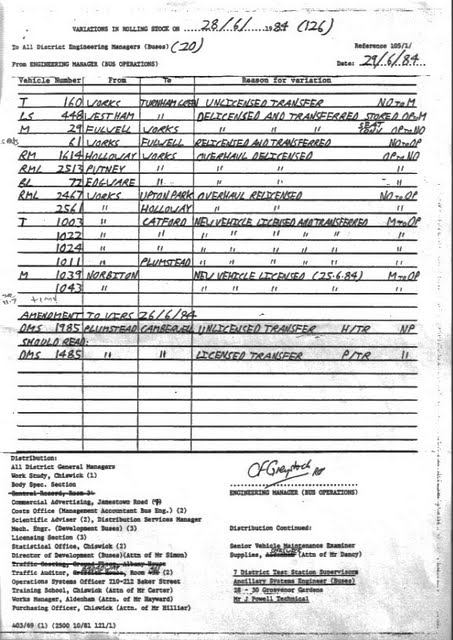 VARIATIONS IN ROLLING STOCK ON 28/6/1984 (126)
To All District Engineering Managers (Buses) (20)
Reference 105/1/
From ENGINEERING MANAGER (BUS OPERATIONS)
Date: 29/6/84.
Vehicle Number From To Reason for variation
T 160 WORKS TURNHAM GREEN UNLICENSED TRANSFER NO TO M
LS 448 WEST HAM " DELICENSED AND TRANSFERRED STORED OP TO M
M 29 FULWELL WORKS " " " SEATS OP TO NO
61 WORKS FULWELL RELICENSED AND TRANSFERRED NO TO OP
RM 1614 HOLLOWAY WORKS OVERHAUL DELICENSED OP TO NO
RML 2513 PUTNEY " " " "
BL 72 EDGWARE " " " "
RML 2467 WORKS UPTON PARK OVERHAUL RELICENSED NO TO OP
2561 " HOLLOWAY " " "
T 1003 " CATFORD NEW VEHICLE LICENSED AND TRANSFERRED M TO OP
1022 " " " " " " " "
1024 " " " " " " " "
1011 " PLUMSTEAD " " " " " "
M 1039 NORBITON NEW VEHICLE LICENSED (25-6-84) M TO OP
1043 " " " " " "
AMENDMENT TO VIRS 26/6/84
DMS 1985 PLUMSTEAD CAMBERWELL UNLICENSED TRANSFER H/TR NP
SHOULD READ:
DMS 1485 " " LICENSED TRANSFER P/TR "
Distribution:
All District General Managers
Work Study, Chiswick (1)
Body Spec. Section
Central Record, Room 34
Commercial Advertising, Jamestown Road
Costs Office (Management Accountant Bus Eng.) (2)
Scientific Adviser (2), Distribution Services Manager
Mech. Engr. (Development Buses) (3)
Licensing Section (3)
Statistical Office, Chiswick (2)
Director of Development (Buses)(Attn of Mr Simon)
Traffic Auditor, (2)
Operations Systems Officer 210-212 Baker Street
Training School, Chiswick (Attn of Mr Carter)
Works Manager, Aldenham (Attn. of Mr Hayward)
Purchasing Officer, Chiswick (Attn of Mr Hillier)
403/69 (1) (2500 10/81 121/1)
ENGINEERING MANAGER (BUS OPERATIONS)
Distribution Continued:
Senior Vehicle Maintenance Examiner
Supplies, (Attn of Mr Dancy)
7 District Test Station Supervisors
Ancillary Systems Engineer (Buses)
28 - 30 Grosvenor Gardens
Mr J Powell Technical